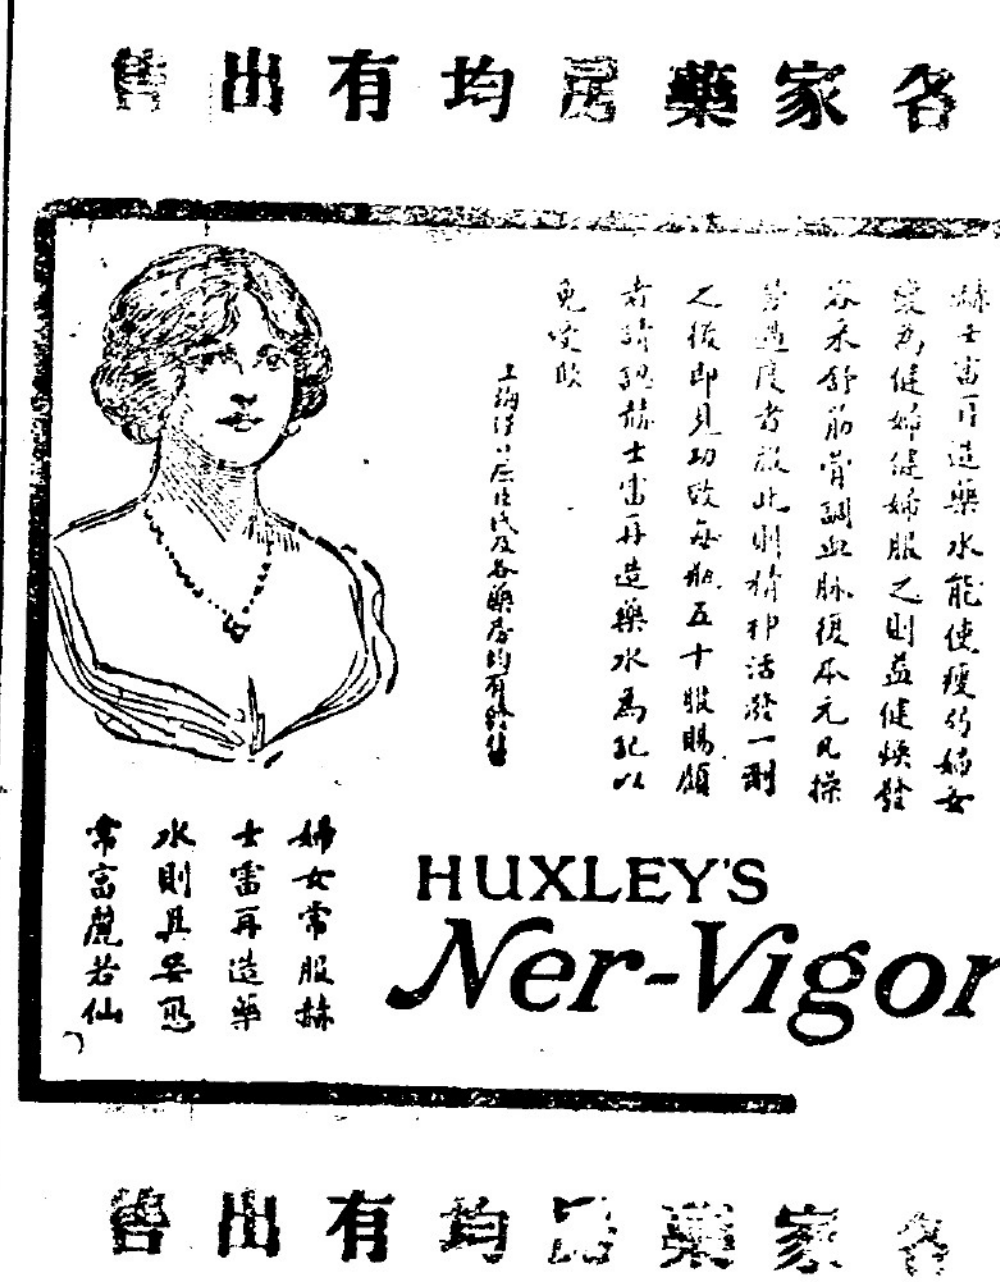 各家藥房均有出售
赫士雷再造藥水能使瘦弱婦女
變為健婦健婦服之則益健煥發
容禾舒筋骨調血脉復本元凡操
勞過度者服此則精神活潑一劑
之後即見功效每瓶五十服賜顧
者請認赫士雷再造藥水為記以
免受欺
上海 及各藥房均有出售
婦女常服赫
士雷再造藥
水則具姿態
常富麗若仙
HUXLEY'S
Ner-Vigor
各家藥房均有出售